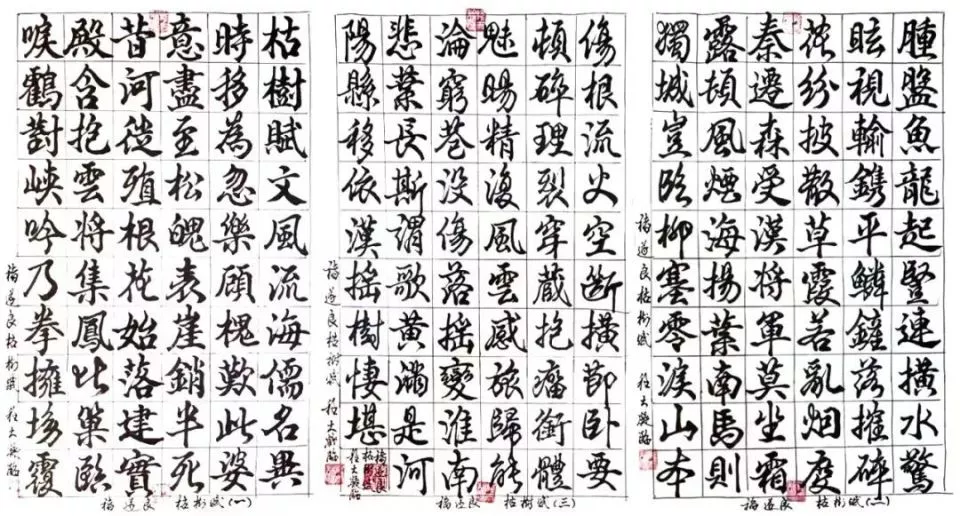 枯樹賦文風流海儒名異
時移為忽樂顧槐歎此婆
意盡至松魄表崖銷半死
昔河徙殖根花始落建實
殿含抱雲將集鳳比巢臨
唳鶴對峽吟乃拳擁場覆
褚遂良枯樹賦
褚遂良 枯樹賦(一)
傷根流火空斷橫節卧要
頓碎理裂穿藏抱瘤銜體
魅睗精復風雲感旅歸能
淪窮巷沒傷落搖變淮南
悲葉長斯謂歌黃溺是河
陽縣移依漢搖樹悽堪
褚遂良枯樹賦
褚遂良 枯樹賦(三)
腫盤魚龍起豎連橫水驚
眩視輸鐫平鱗鏟落摧碎
花紛披散草霞若亂烟度
秦遷森受漢將軍莫坐霜
露頓風煙海揚葉南馬則
獨城豈臨柳塞零淚山本
褚遂良枯樹賦
褚遂良 枯樹賦(二)